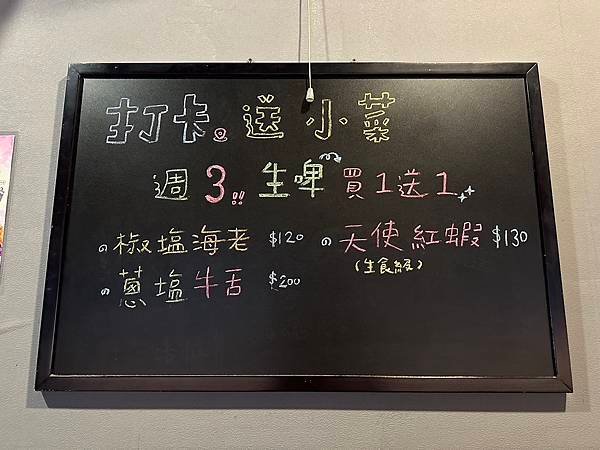 打卡。送小菜
週3!! 生啤買1送1
の椒塩海老 $120
の天使紅蝦 $130
(生食級)
の蔥塩牛舌 $200